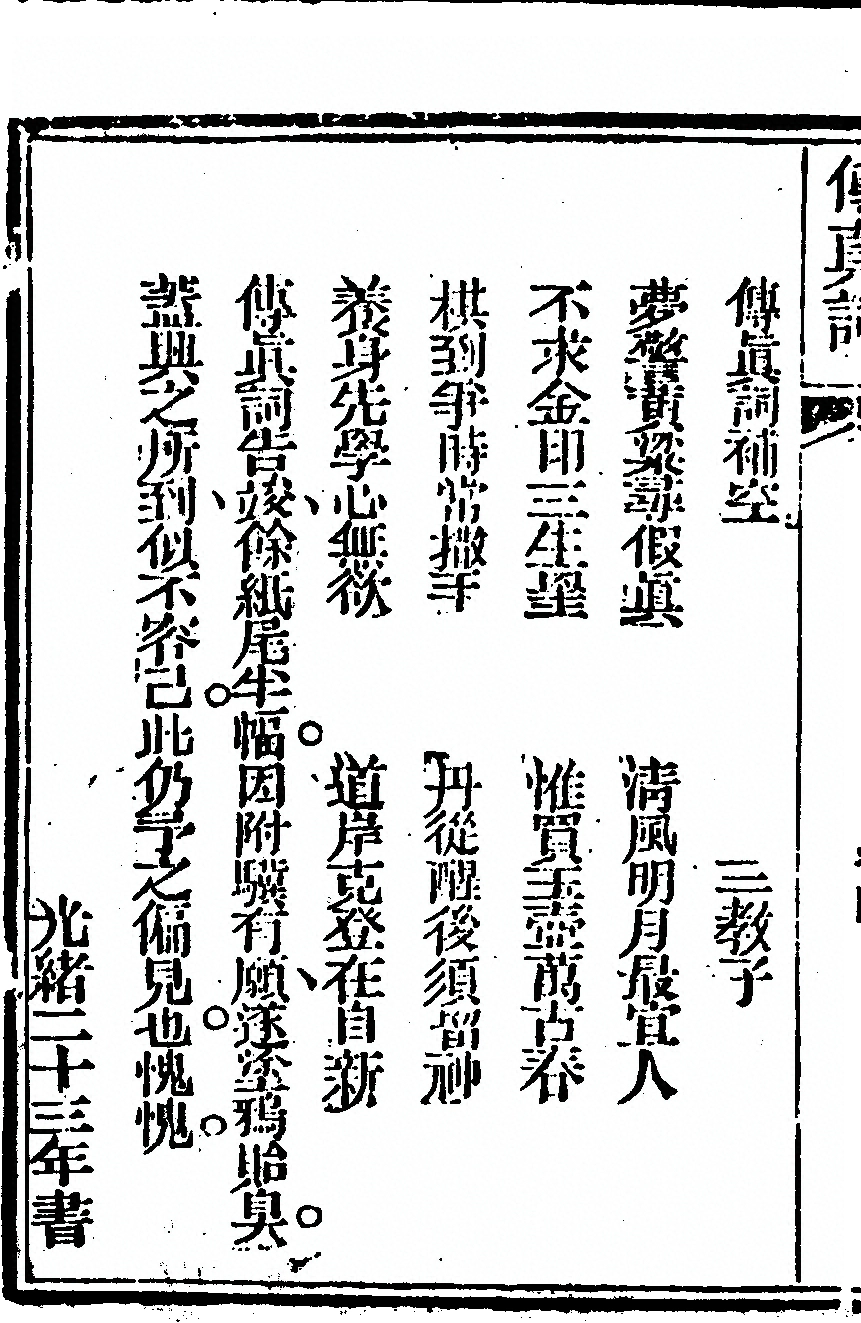 傳真詞
傳眞詞補空 三教子
夢驚黃粱尋假眞 清風明月最宜人
不求金印三生望 惟買玉壺萬古春
棋到爭時常撒手 丹從醒後須留神
養身先學心無欲 道岸克登在自新
傳眞詞告竣、餘紙尾半幅。因附驥有願、遂塗鴉貽臭。
蓋興之所到、似不容已。此仍予之偏見也。愧愧。
光緒二十三年書